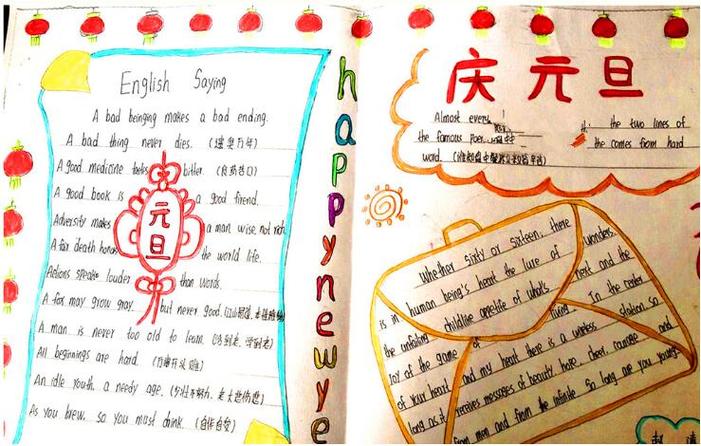 English Saying
A bad beinging makes a bad ending.
A bad thing never dies. (遗臭万年)
A good medicine tastes bitter. (良药苦口)
A good book is a good friend.
Adversity makes a man wise, not rich
A fair death honors the world life.
Actions speake louder than words.
A fox may grow gray, but never good.
A man is never too old to learn. (活到老,学到老)
All beginnings are hard. (万事开头难)
An idle youth, a needy age. (少壮不努力,老大徒伤悲)
As you brew, so you must drink. (自作自受)
元旦
happynewye
庆元旦
Almost every the two lines of
the famous Poer the comes from hard
word.
Whether sixty or sixteen, there
is in human being's heart the lure of wonders,
the unfoling childlike appetite of what's next and the
joy of the game of living. In the center
of your heart and my heart there is a wireless station so
long as it receives messages of beauty hope, cheer, courage and
from man and from the infinite so long are you young.